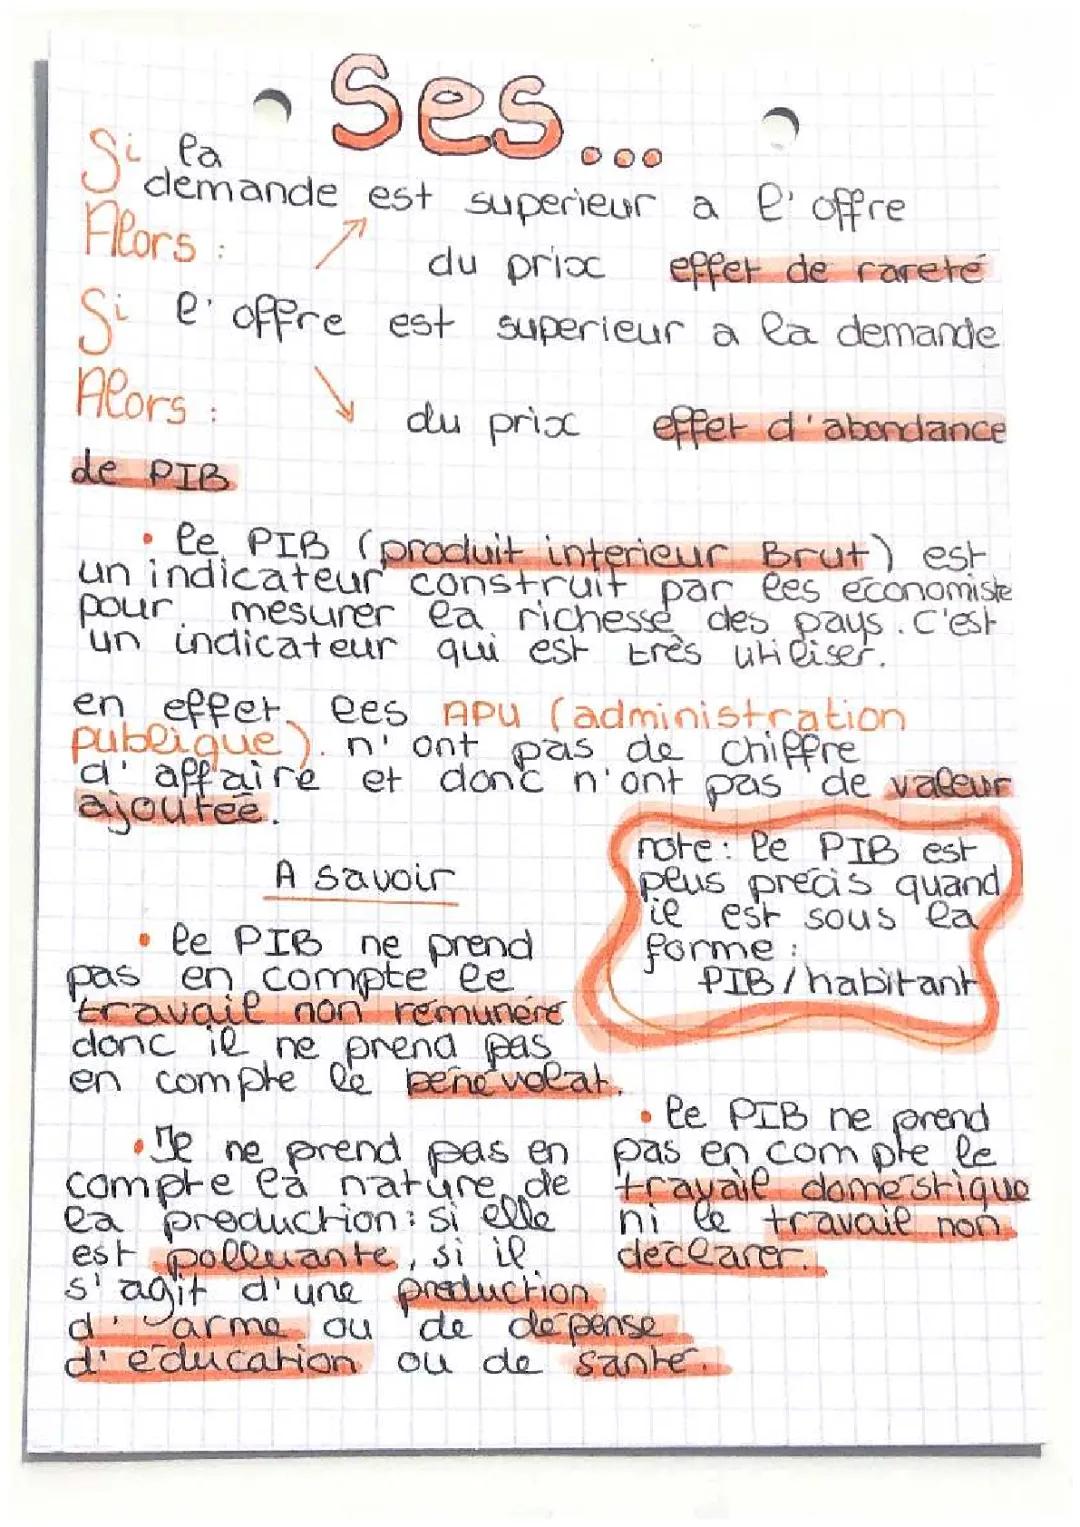 Ses...
Si la
demande est superieur a l'offre
Alors : ↗ du prix effet de rareté
Si l'offre est superieur a la demande
Alors : ↘ du prix effet d'abondance
de PIB
• le PIB (produit interieur Brut) est
un indicateur construit par les économiste
pour mesurer la richesse des pays. C'est
un indicateur qui est très utiliser.
en effet les APU (administration
publique). n'ont pas de chiffre
d'affaire et donc n'ont pas de valeur
ajoutée.
note: le PIB est
plus précis quand
il est sous la
forme :
PIB/habitant
A savoir
• le PIB ne prend
pas en compte le
travail non rémunéré
donc il ne prend pas
en compte le bénévolat.
• Il ne prend pas en
compte la nature de
la production: si elle
est polluante, si il
s'agit d'une production
d'arme ou de dépense
d'éducation ou de santé.
• le PIB ne prend
pas en compte le
travail domestique
ni le travail non
déclarer.